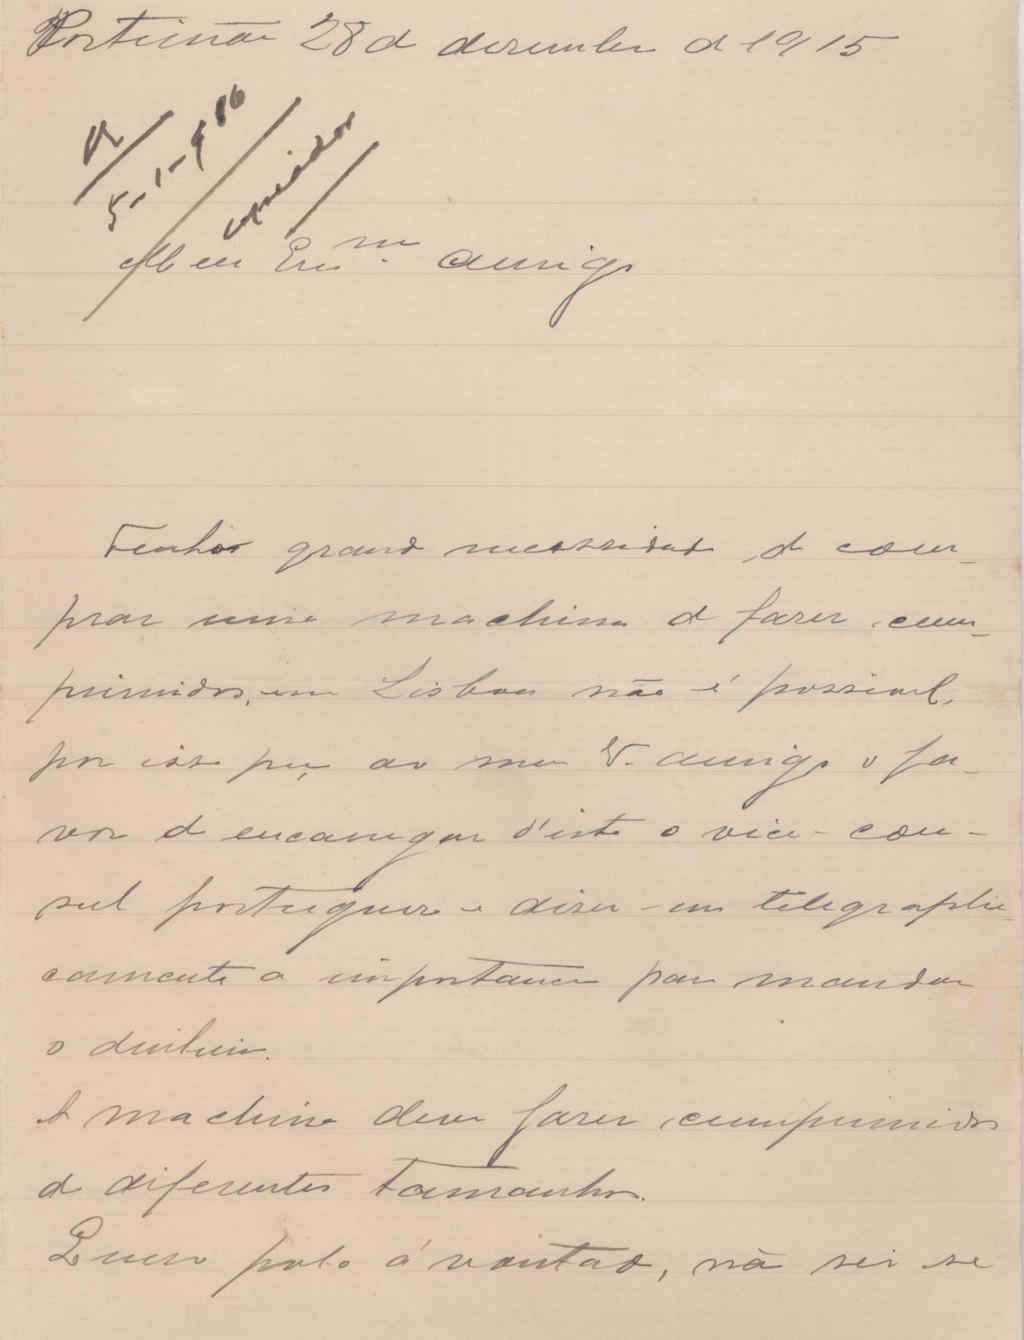 Portimão 28 de dezembro de 1915
R
5-1-916
copiador
Meu Exmo. amigo
Tenho grande necessidade de com-
prar uma machina de fazer com-
primidos, em Lisboa não é possivel,
por isso peço ao meu V. amigo o fa-
vor de encarregar d'isto o vice-con-
sul portuguez e dizer-me telegraphi-
camente a importancia para mandar
o dinheiro.
A machina deve fazer comprimidos
de diferentes tamanhos.
Quero pol-o á vontade, não sei se